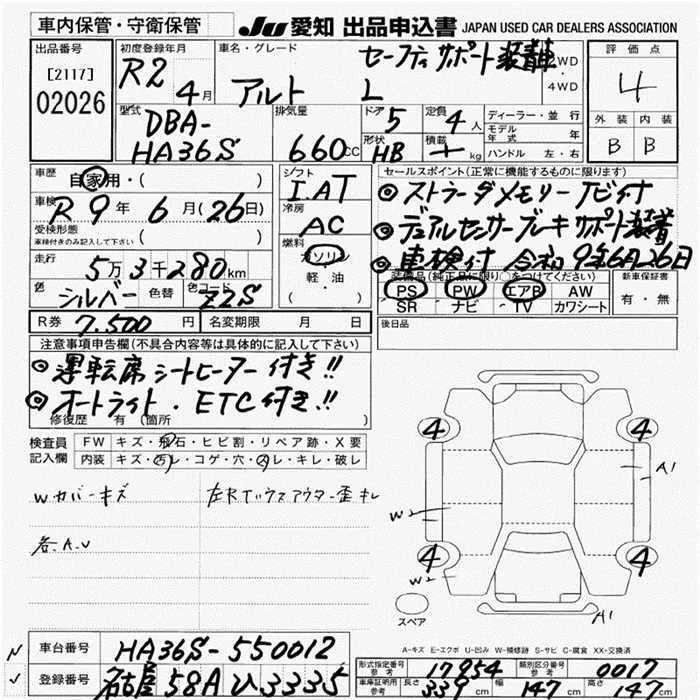 車内保管・守衛保管 JU 愛知 出品申込書 JAPAN USED CAR DEALERS ASSOCIATION
出品番号 初度登録年月 車名・グレード セーフティサポート装着車 2WD・4WD 評価点
[2117] 02026 R2 4月 アルト L 4
型式 排気量 ドア 5 定員 4人 ディーラー・並行 外装 内装
DBA-HA36S 660cc 形状 HB 積載 kg モデル年式 年 B B
ハンドル 左・右
車歴 自家用・( ) シフト I.AT セールスポイント(正常に機能するものに限ります)
車検 R9年6月(26日) 冷房 AC ◎ストラーダメモリーナビ付
受検形態 車検付きのみ記入して下さい ( ) 燃料 ガソリン 軽・油 ( ・ ) ◎デュアルセンサーブレーキサポート装着
走行 5万3千280km ◎車検付 令和9年6月26日
色 シルバー 色替 色コード Z2S 装備品(純正品に限り○をつけてください) 新車保証書
PS PW エアB AW 有・無
SR ナビ TV カワシート
R券 7.500円 名変期限 月 日 後日品
注意事項申告欄(不具合内容等は具体的に記入して下さい)
◎運転席シートヒーター付き!!
◎オートライト・ETC付き!!
修復歴 有 (箇所 )
検査員記入欄 FW キズ・飛石・ヒビ割・リペア跡・X要
内装 キズ・汚レ・コゲ・穴・スレ・キレ・破レ
Wカバーキズ
各A.U
4 4 A1
W2
4 4
W2
A1
スペア
A-キズ E-エクボ U-凹み W-補修跡 S-サビ C-腐食 XX-交換済
車台番号 HA36S-550012
登録番号 名古屋 58A ひ3335
型式指定番号 参考 17954 類別区分番号 参考 0017
車庫証明用 参考 長さ 339cm 幅 147cm 高さ 147cm